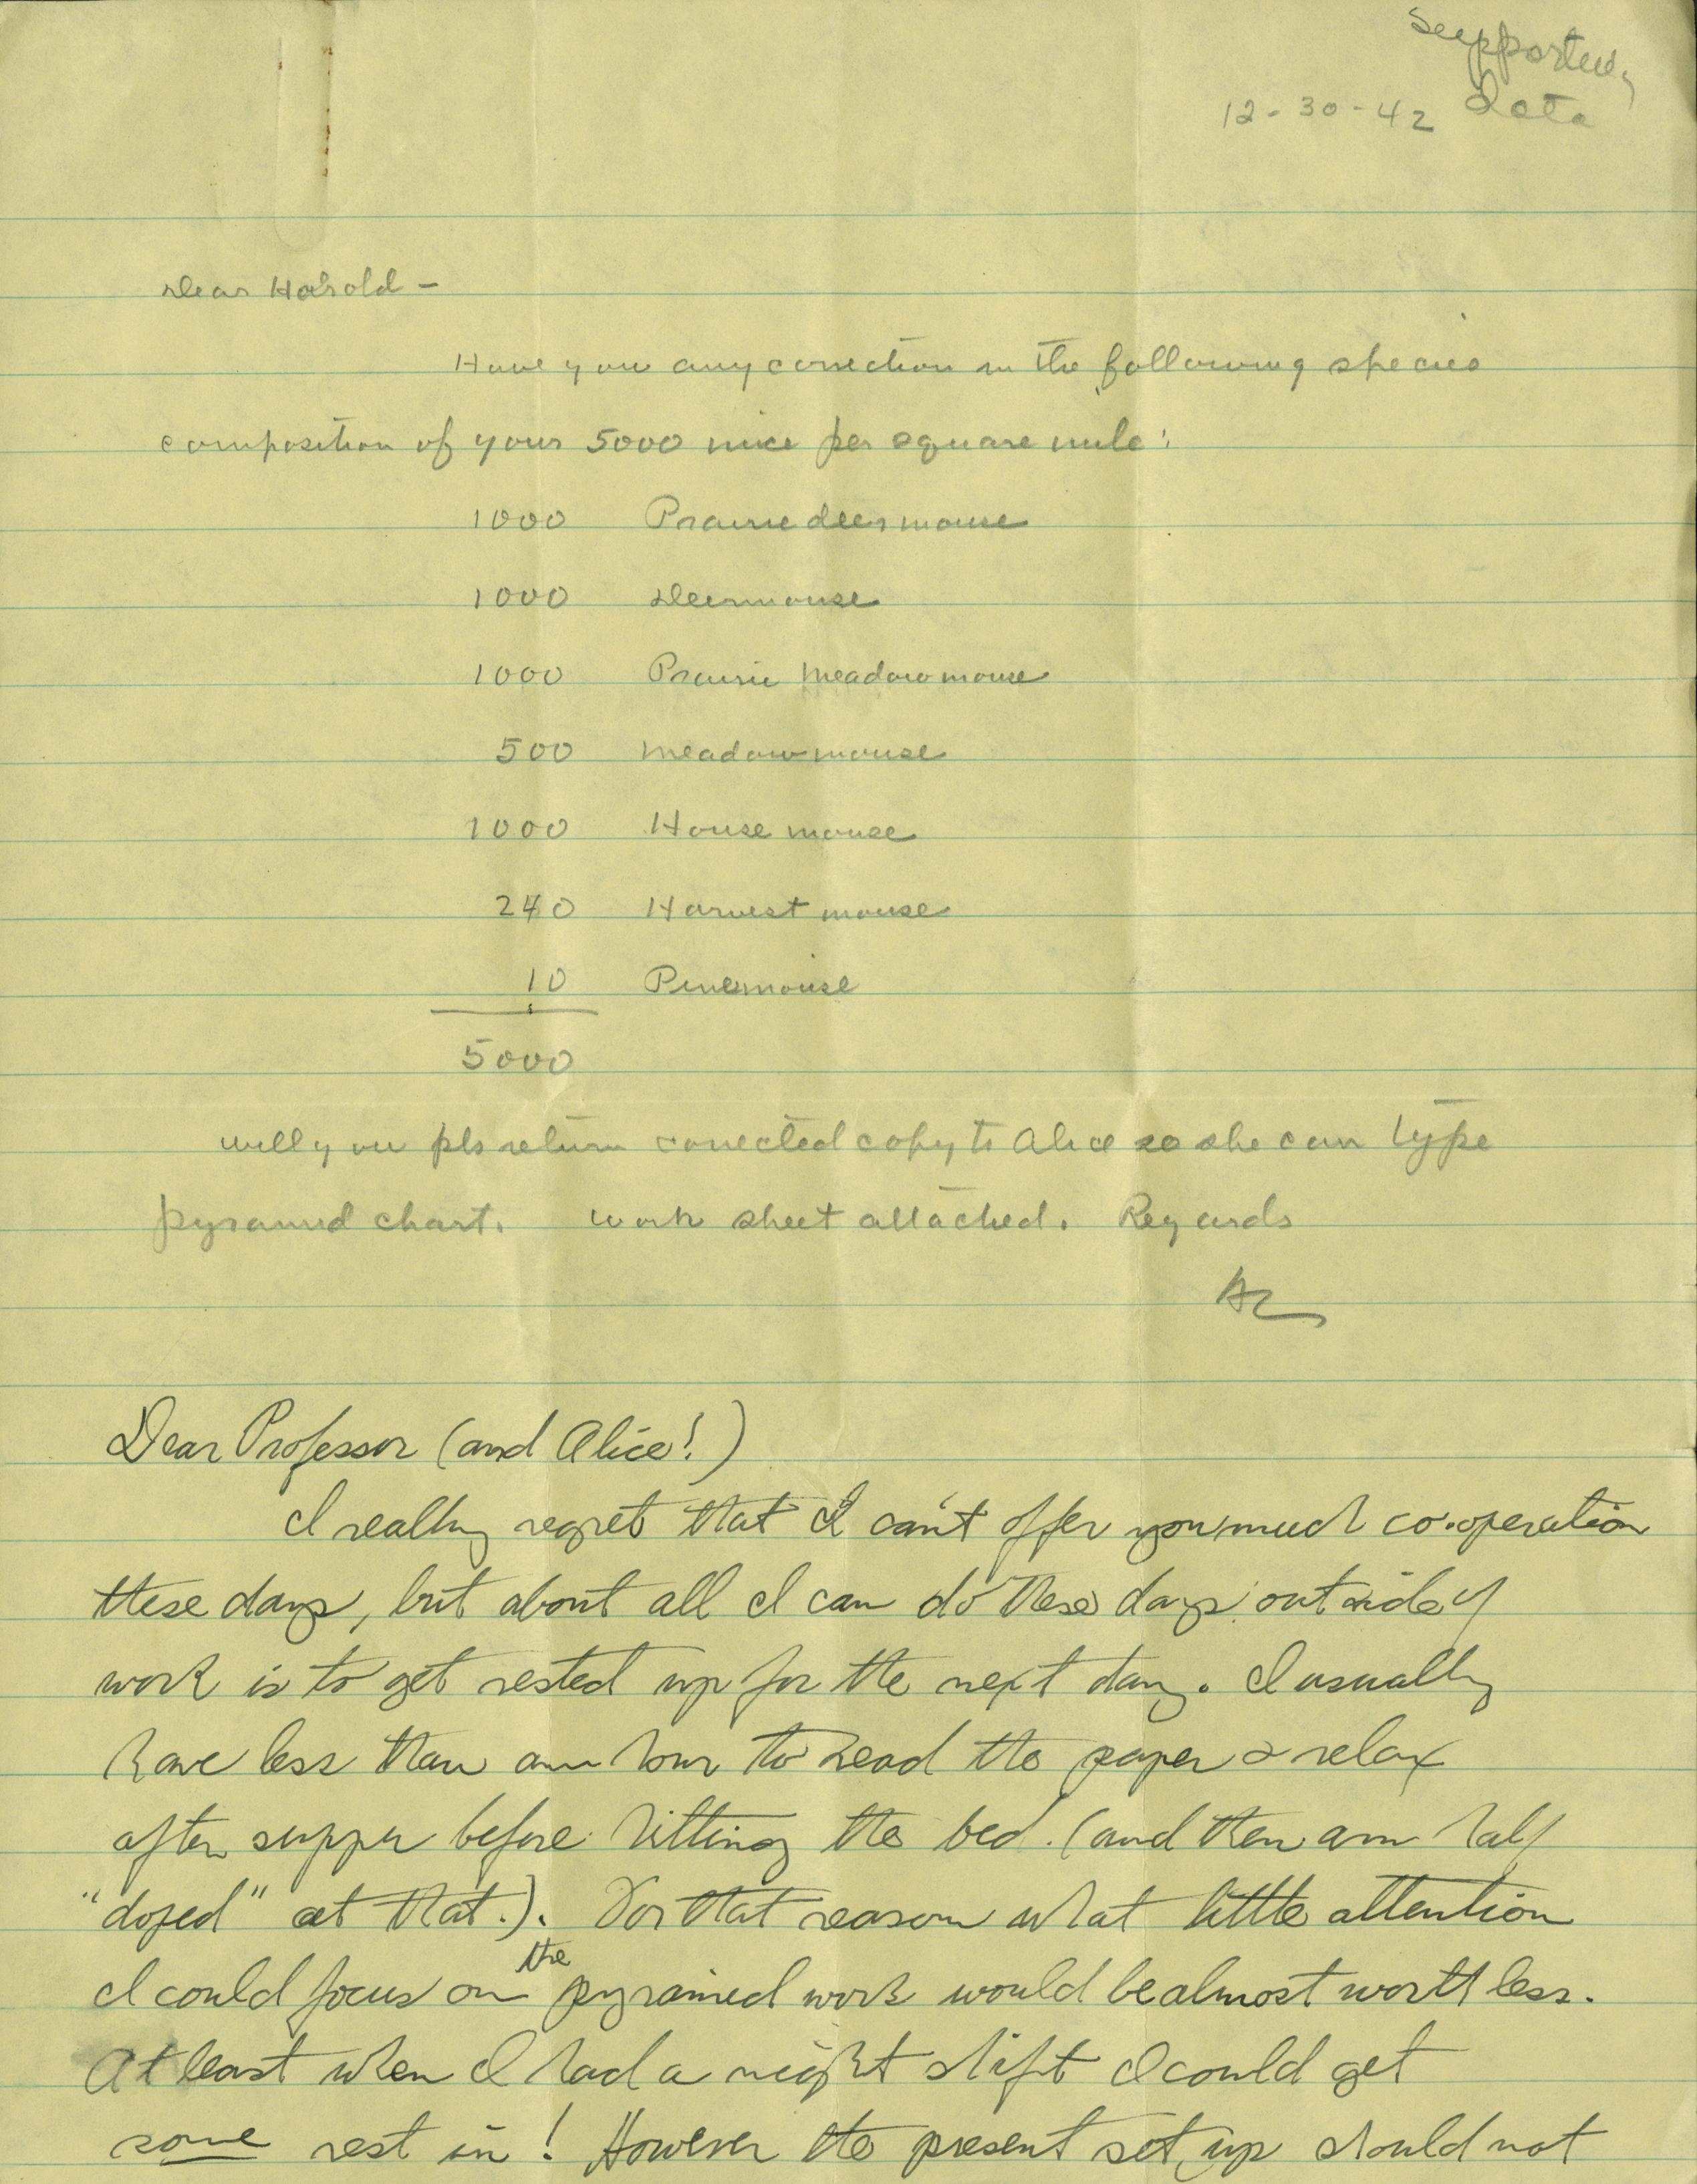 Supporting
12-30-42 Data
Dear Harold -
Have you any correction in the following species
composition of your 5000 mice per square mile:
1000 Prairie deermouse
1000 Deermouse
1000 Prairie Meadowmouse
500 Meadowmouse
1000 House mouse
240 Harvest mouse
10 Pinemouse
5000
Will you pls return corrected copy to Alice so she can type
pyramid chart. Work sheet attached. Regards
AL
Dear Professor (and Alice!)
I really regret that I can't offer you much co-operation
these days, but about all I can do these days outside of
work is to get rested up for the next day. I usually
have less than an hour to read the paper & relax
after supper before hitting the bed. (and then am half
"doped" at that.). For that reason what little attention
I could focus on the pyramid work would be almost worthless.
At least when I had a night shift I could get
some rest in! However the present set up should not